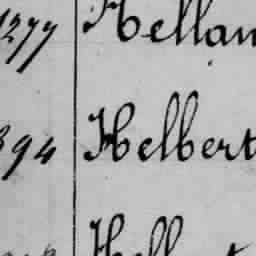 1277 Hellan
894 Helbert